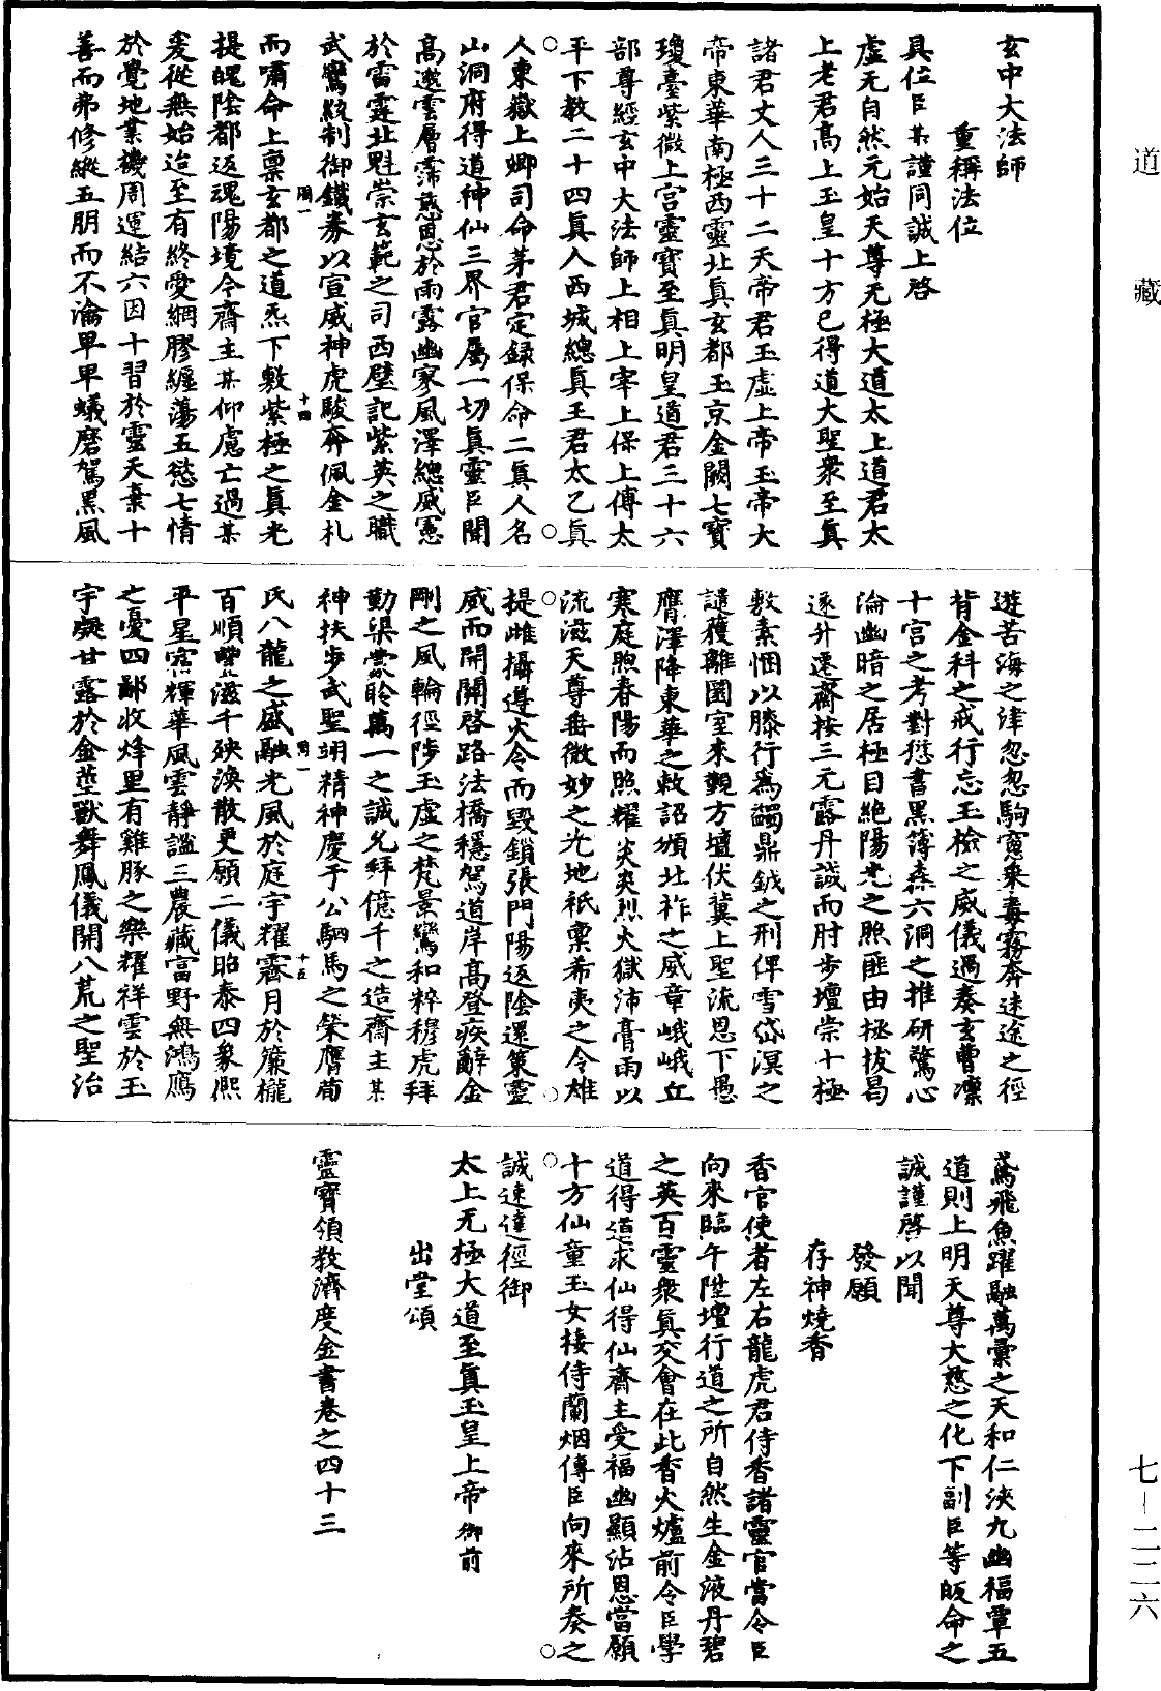 道藏
七-二二六
玄中大法師
重稱法位
具位臣某謹同誠上啓
虛无自然元始天尊无極大道太上道君太
上老君高上玉皇十方已得道大聖衆至眞
諸君丈人三十二天帝君玉虛上帝玉帝大
帝東華南極西靈北眞玄都玉京金闕七寶
瓊臺紫微上宮靈寶至眞明皇道君三十六
部尊經玄中大法師上相上宰上保上傅太
平下教二十四眞人西城總眞王君太乙眞
人東嶽上卿司命茅君定録保命二眞人名
山洞府得道神仙三界官屬一切眞靈臣聞
高邈雲層霈慈恩於雨露幽冢風澤總威憲
於雷霆北魁崇玄範之司西璧記紫英之職
武鸞統制御鐵券以宣威神虎駿奔佩金札
而嘯命上禀玄都之道炁下敷紫極之眞光
提魄陰都返魂陽境今齋主某仰慮亡過某
爰從無始迨至有終愛網膠纏蕩五慾七情
於覺地業機周運結六因十習於靈天棄十
善而弗修縱五朋而不淪早早蟻磨駕黑風
遊苦海之津忽忽駒窻乘毒霧奔迷途之徑
背金科之戒行忘玉檢之威儀過奏玄曹凛
十宮之考對愆書黑簿森六洞之推研驚心
淪幽暗之居極目絶陽光之照匪由拯拔曷
遂升遷齋按三元露丹誠而肘步壇崇十極
敷素悃以膝行爲蠲鼎鉞之刑俾雪岱溟之
譴獲離圜室來觀方壇伏冀上聖流恩下愚
膺澤降東華之敕詔頒北祚之威章峨峨立
寒庭煦春陽而照耀炎炎烈火獄沛膏雨以
流滋天尊垂微妙之光地祇禀希夷之令雄
提雌攝遵火令而毀鎖張門陽返陰還策靈
威而開關啓路法橋穩駕道岸高登疾辭金
剛之風輪徑陟玉虛之梵景鸞和粹穆虎拜
勤渠蒙聆萬一之誠允拜億千之造齋主某
神扶步武聖翊精神慶于公駟馬之榮膺荀
氏八龍之盛融光風於庭宇耀霽月於簾櫳
百順豐滋千殃渙散更願二儀昭泰四象熙
平星宿輝華風雲靜謐三農藏富野無鴻鴈
之憂四鄙收烽里有雞豚之樂耀祥雲於玉
宇凝甘露於金莖獸舞鳳儀開八荒之聖治
鳶飛魚躍融萬彙之天和仁浹九幽福覃五
道則上明天尊大慈之化下副臣等皈命之
誠謹啓以聞
發願
存神燒香
香官使者左右龍虎君侍香諸靈官當令臣
向來臨午陞壇行道之所自然生金液丹碧
之英百靈衆眞交會在此香火爐前令臣學
道得道求仙得仙齋主受福幽顯沾恩當願
十方仙童玉女接侍蘭烟傳臣向來所奏之
誠速達徑御
太上无極大道至眞玉皇上帝御前
出堂頌
靈寶領教濟度金書卷之四十三